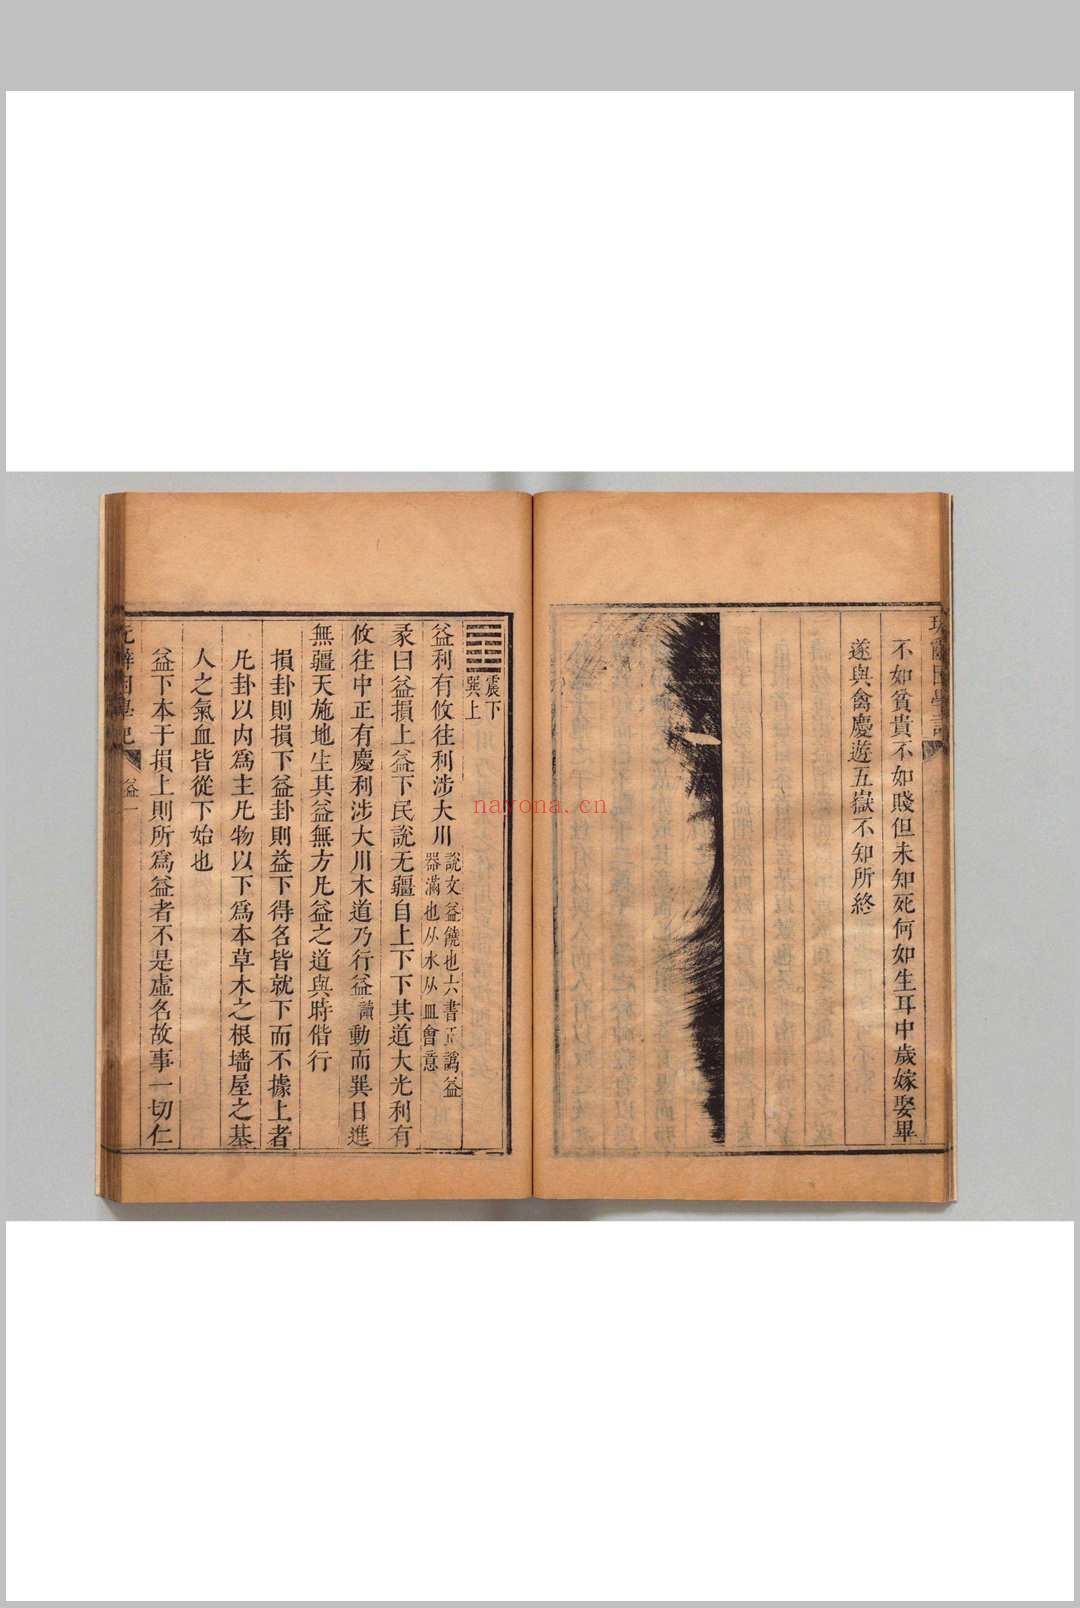 不如貧貴不如賤但未知死何如生耳中歲嫁娶畢
遂與禽慶遊五嶽不知所終
震下
巽上
益利有攸往利涉大川
說文益饒也六書正譌益
器滿也从水从皿會意
彖曰益損上益下民說无疆自上下下其道大光利有
攸往中正有慶利涉大川木道乃行益讀動而巽日進
無疆天施地生其益無方凡益之道與時偕行
損卦則損下益卦則益下得名皆就下而不據上者
凡卦以内爲主凡物以下爲本草木之根墻屋之基
人之氣血皆從下始也
益下本于損上則所爲益者不是虛名故事一切仁
益一
nayona.cn